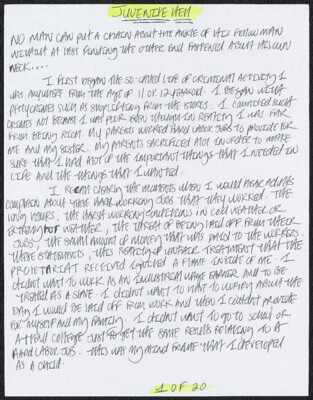 JUVENILE HELL
NO MAN CAN PUT A CHAIN ABOUT THE ANKLE OF HIS FELLOW MAN
WITHOUT AT LAST FINDING THE OTHER END FASTENED ABOUT HIS OWN
NECK....
I FIRST BEGAN THE SO-CALLED LIFE OF CRIMINAL ACTIVITY I
WAS ANYWHERE FROM THE AGE OF 11 OR 12 YEARS OLD. I BEGAN WITH
PETTY CRIMES SUCH AS SHOPLIFTING FROM THE STORES. I COMMITTED SUCH
CRIMES NOT BECAUSE I WAS POOR EVEN THOUGH IN REALITY I WAS FAR
FROM BEING RICH. MY PARENTS WORKED HARD LABOR JOBS TO PROVIDE FOR
ME AND MY SISTER. MY PARENTS SACRIFICED ALOT IN ORDER TO MAKE
SURE THAT I HAD ALOT OF THE IMPORTANT THINGS THAT I NEEDED IN
LIFE AND THE THINGS THAT I WANTED.
I RECALL CLEARLY THE MOMENTS WHEN I WOULD HEAR ADULTS
COMPLAIN ABOUT THEIR HARD WORKING JOBS THAT THEY WORKED. THE
LONG HOURS, THE HARSH WORKING CONDITIONS IN COLD WEATHER OR
EXTREME HOT WEATHER, THE THREAT OF BEING LAID OFF FROM THEIR
JOBS, THE SMALL AMOUNT OF MONEY THAT WAS PAID TO THE WORKERS.
THESE STATEMENTS, THIS REALITY OF UNFAIR TREATMENT THAT THE
PROLETARIAT RECEIVED IGNITED A FLAME INSIDE OF ME. I
DIDN'T WANT TO WORK AS AN INDUSTRIAL WAGE EARNER AND TO BE
TREATED AS A SLAVE. I DIDN'T WANT TO HAVE TO WORRY ABOUT THE
DAY I WOULD BE LAID OFF FROM WORK AND THEN I COULDN'T PROVIDE
FOR MYSELF AND MY FAMILY. I DIDN'T WANT TO GO TO SCHOOL OR
ATTEND COLLEGE JUST TO GET THE SAME RESULTS RELATING TO A
HARD LABOR JOB. THIS WAS MY MIND FRAME THAT I DEVELOPED
AS A CHILD.
1 OF 20